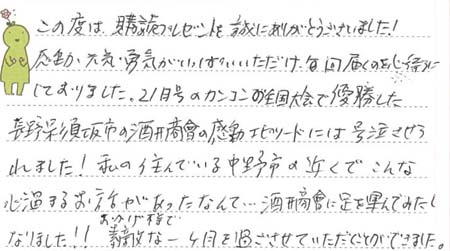 この度は、購読プレゼントを誠にありがとうございました!
感動、元気、勇気がいっぱいいただけ、毎回届くのを心待ちに
しておりました。21日号のカンコン的全国大会で優勝した
長野県須坂市の酒井商會の感動エピソードには号泣させら
れました! 私の住んでいる中野市の近くでこんな
心温まるお話があったなんて…酒井商會に足を運んでみたく
なりました!! おかげ様で
素敵な一ヶ月を過ごさせていただくことができました。